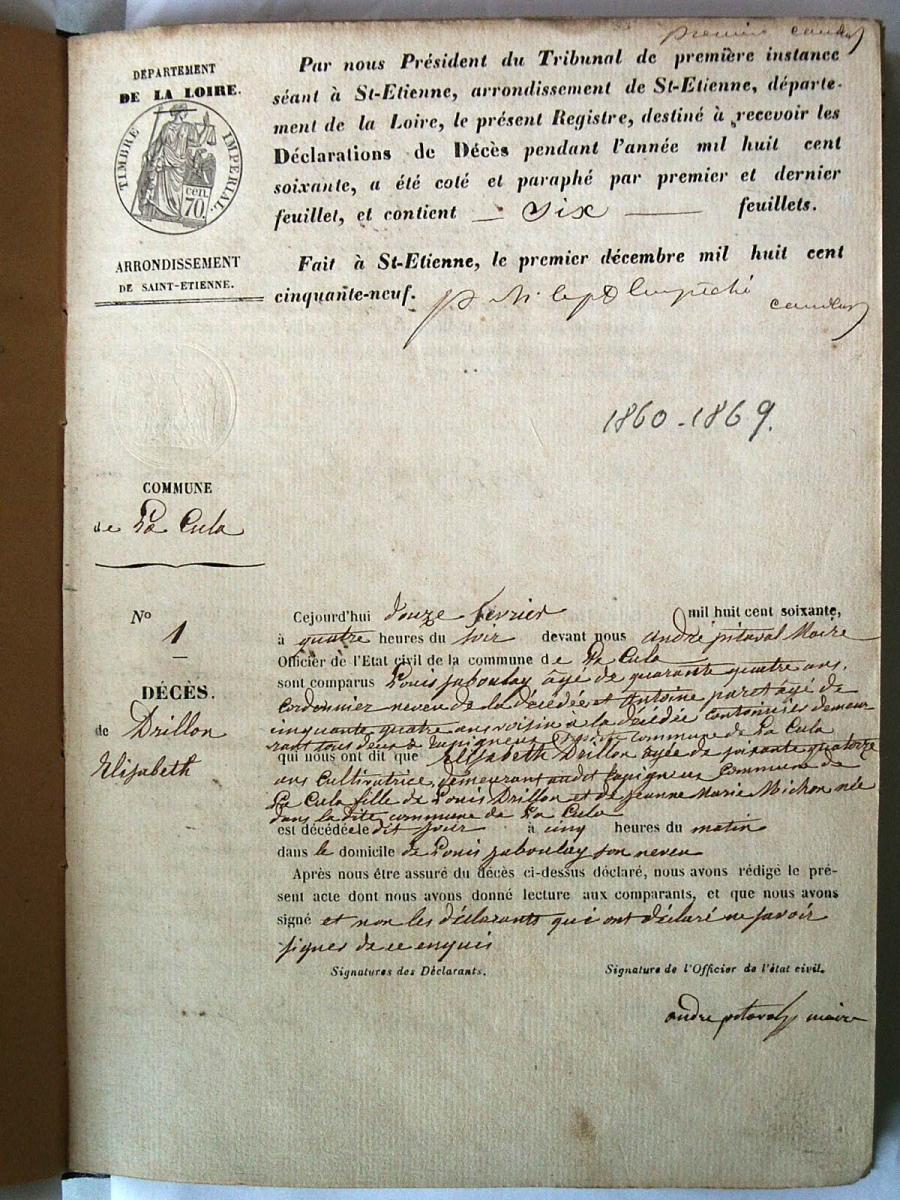 premier
DÉPARTEMENT
DE LA LOIRE.
TIMBRE IMPERIAL.
cen.
70.
ARRONDISSEMENT
DE SAINT-ETIENNE.
Par nous Président du Tribunal de première instance
séant à St-Etienne, arrondissement de St-Etienne, départe-
ment de la Loire, le présent Registre, destiné à recevoir les
Déclarations de Décès pendant l'année mil huit cent
soixante, a été coté et paraphé par premier et dernier
feuillet, et contient — Six — feuillets.
Fait à St-Etienne, le premier décembre mil huit cent
cinquante-neuf.
empêché
1860-1869.
COMMUNE
de La Cula
No
1
DÉCÈS.
de Drillon
Elisabeth
Cejourd'hui douze fevrier mil huit cent soixante,
à quatre heures du soir devant nous andré pitaval Maire
Officier de l'Etat civil de la commune de La Cula
sont comparus Louis jaboulay âgé de quarante quatre ans,
cordonnier neveu de la décédée et Antoine paret âgé de
cinquante quatre ans voisin a la décédée demeu
rant tous deux à commune de La Cula
qui nous ont dit que Elisabeth Drillon agée de soixante quatorze
ans Cultivatrice, demeurant audit commune de
La Cula fille de Louis Drillon et de jeanne Marie Michon née
dans la dite commune de La Cula
est décédée le dit jour à cinq heures du matin
dans le domicile de Louis jaboulay son neveu
Après nous être assuré du décès ci-dessus déclaré, nous avons rédigé le pré-
sent acte dont nous avons donné lecture aux comparants, et que nous avons
signé et non les déclarants qui ont déclaré ne savoir
signer de ce enquis
Signatures des Déclarants. Signature de l'Officier de l'état civil.
andre pitaval maire